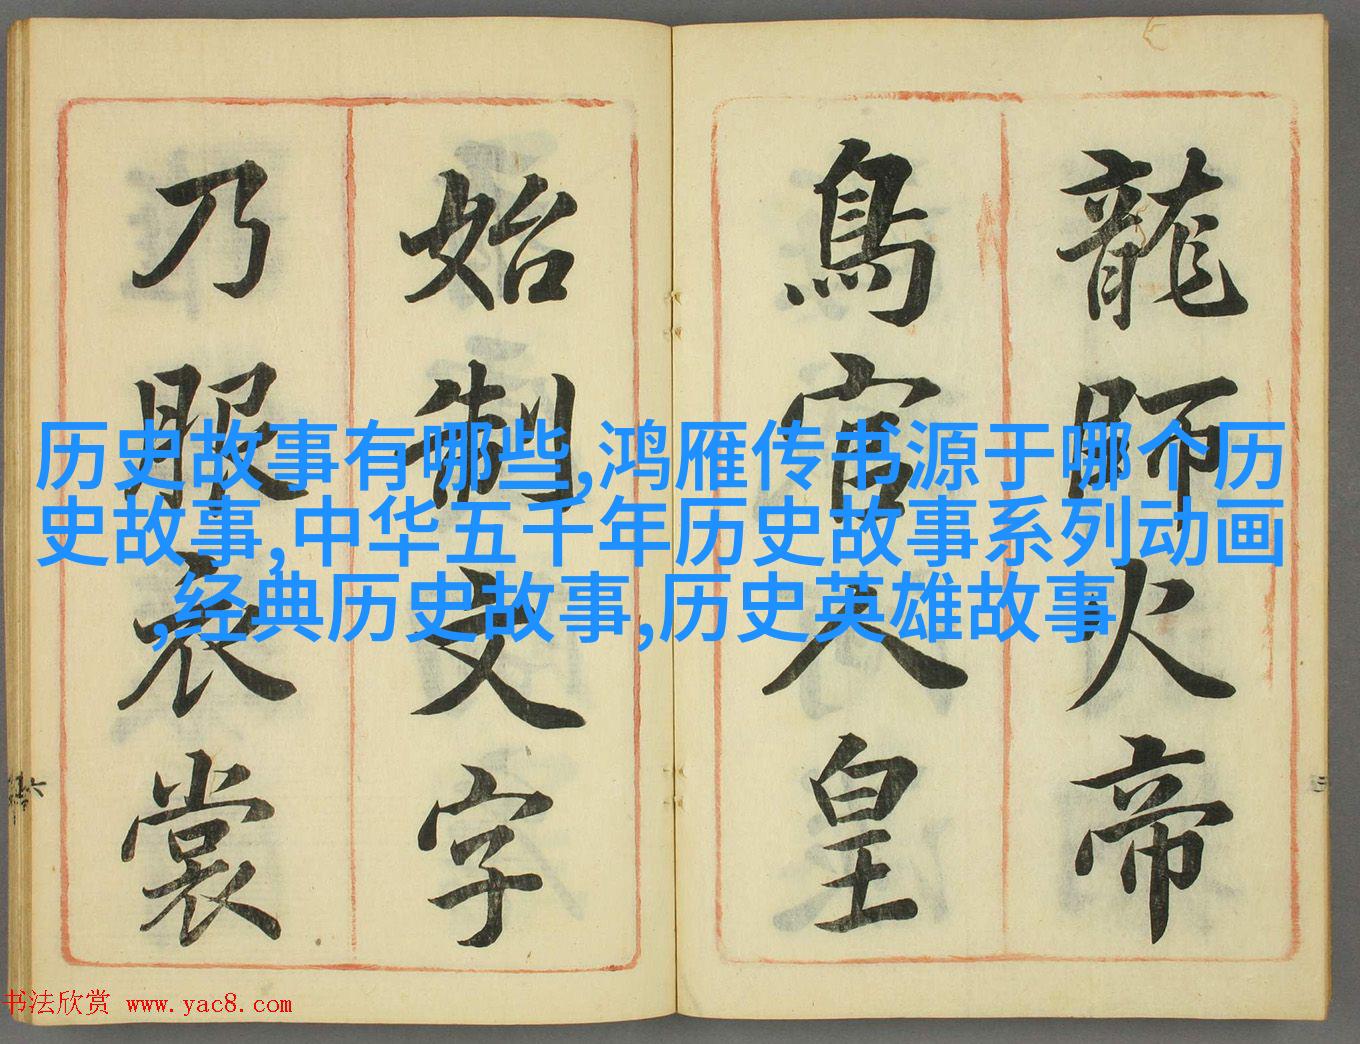 龍師火帝
鳥官人皇
始制文字
乃服衣裳
历史故事有哪些,鸿雁传书源于哪个历
史故事,中华五千年历史故事系列动画
,经典历史故事,历史英雄故事
书法欣赏 www.yac8.com